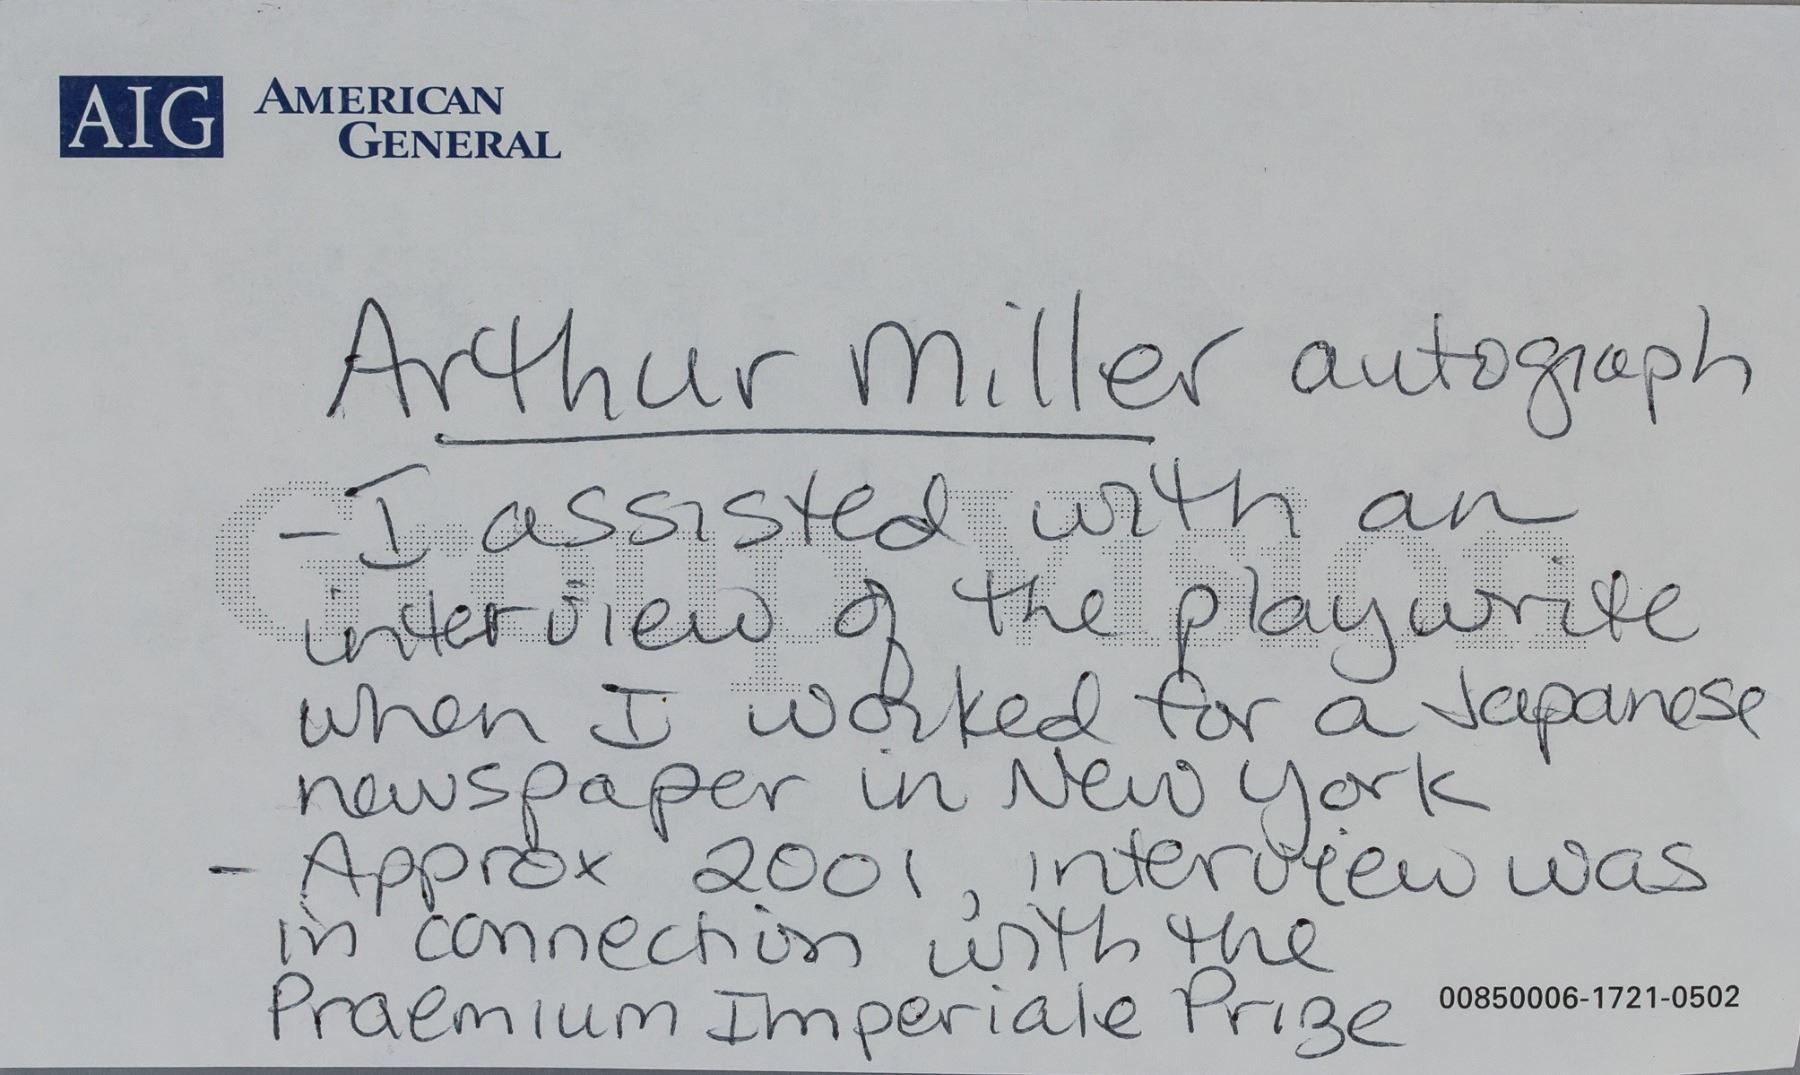 AIG AMERICAN
GENERAL
Arthur Miller autograph
- I assisted with an
interview of the playwrite
when I worked for a Japanese
newspaper in New York
- Approx 2001, interview was
in connection with the
Praemium Imperiale Prize
00850006-1721-0502
GroupVision